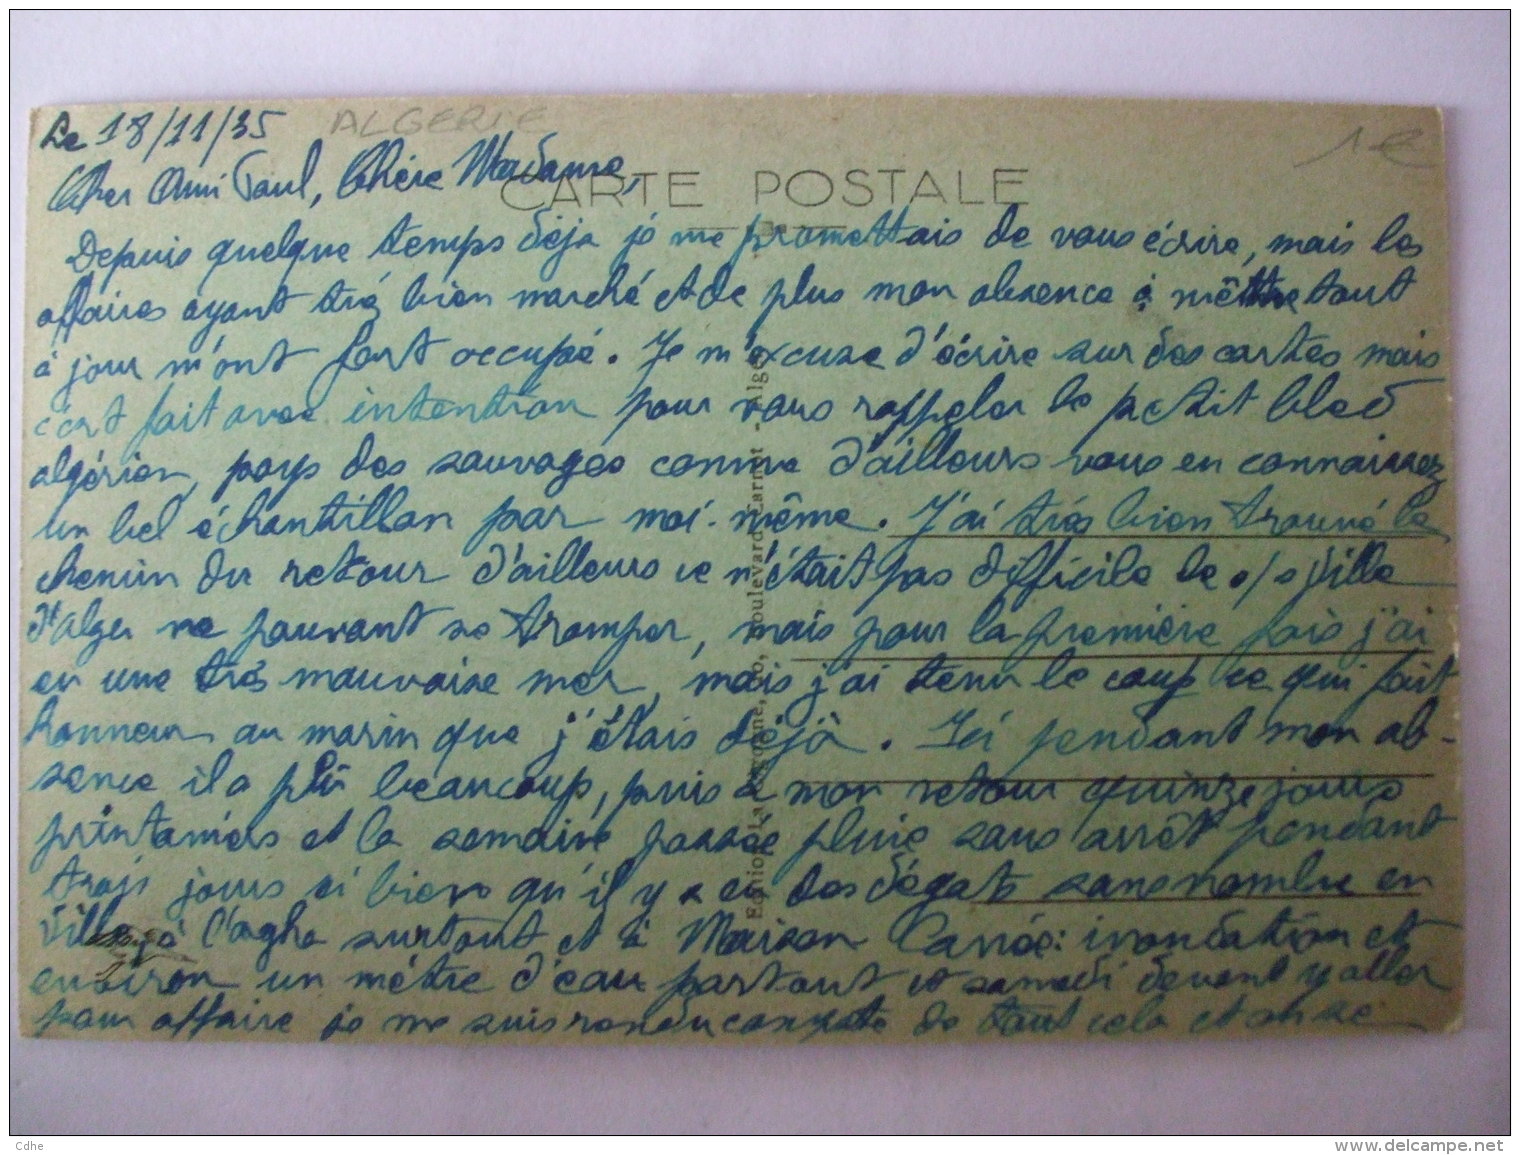 Le 18/11/35 ALGERIE
1 €
Cher Ami Paul, Chère Madame,
CARTE POSTALE
Depuis quelque temps déja je me promettais de vous écrire, mais les
affaires ayant trés bien marché et de plus mon absence à mêttre tout
à jour m'ont fort occupé. Je m'excuse d'écrire sur des cartes mais
c'est fait avec intention pour vous rappeler le petit bled
algérien, pays des sauvages comme d'ailleurs vous en connaissez
un bel échantillon par moi-même. J'ai trés bien trouvé le
chemin du retour d'ailleurs ce n'était pas difficile le s/s Ville
d'Alger ne pouvant se tromper, mais pour la première fois j'ai
eu une trés mauvaise mer, mais j'ai tenu le coup ce qui fait
honneur au marin que j'étais déjà. Ici pendant mon ab-
sence il a plû beaucoup, puis à mon retour quinze jours
printaniers et la semaine passée pluie sans arrêt pendant
trois jours si bien qu'il y a eu des dégats sans nombre en
ville, à l'agha surtout et à Maison Carrée: inondation et
environ un mètre d'eau partout et samedi devant y aller
pour affaire je me suis rendu compte de tout cela et
boulevard Carnot - Alger
Cdhe
www.delcampe.net